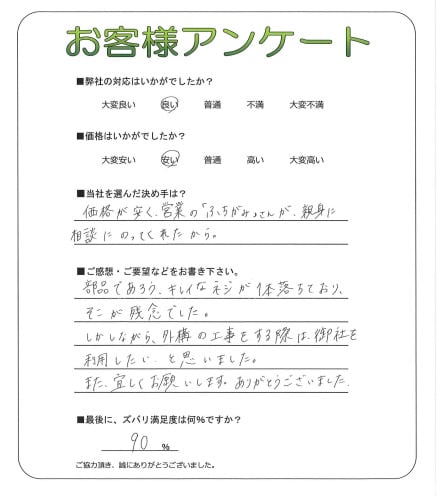 お客様アンケート
■弊社の対応はいかがでしたか?
大変良い 良い 普通 不満 大変不満
■価格はいかがでしたか?
大変安い 安い 普通 高い 大変高い
■当社を選んだ決め手は?
価格が安く、営業の「ふちがみ」さんが、親身に
相談にのってくれたから。
■ご感想・ご要望などをお書き下さい。
部品であろう、キレイなネジが1本落ちており、
そこが残念でした。
しかしながら、外構の工事をする際は、御社を
利用したい、と思いました。
また、宜しくお願いします。ありがとうございました。
■最後に、ズバリ満足度は何%ですか?
90 %
ご協力頂き、誠にありがとうございました。